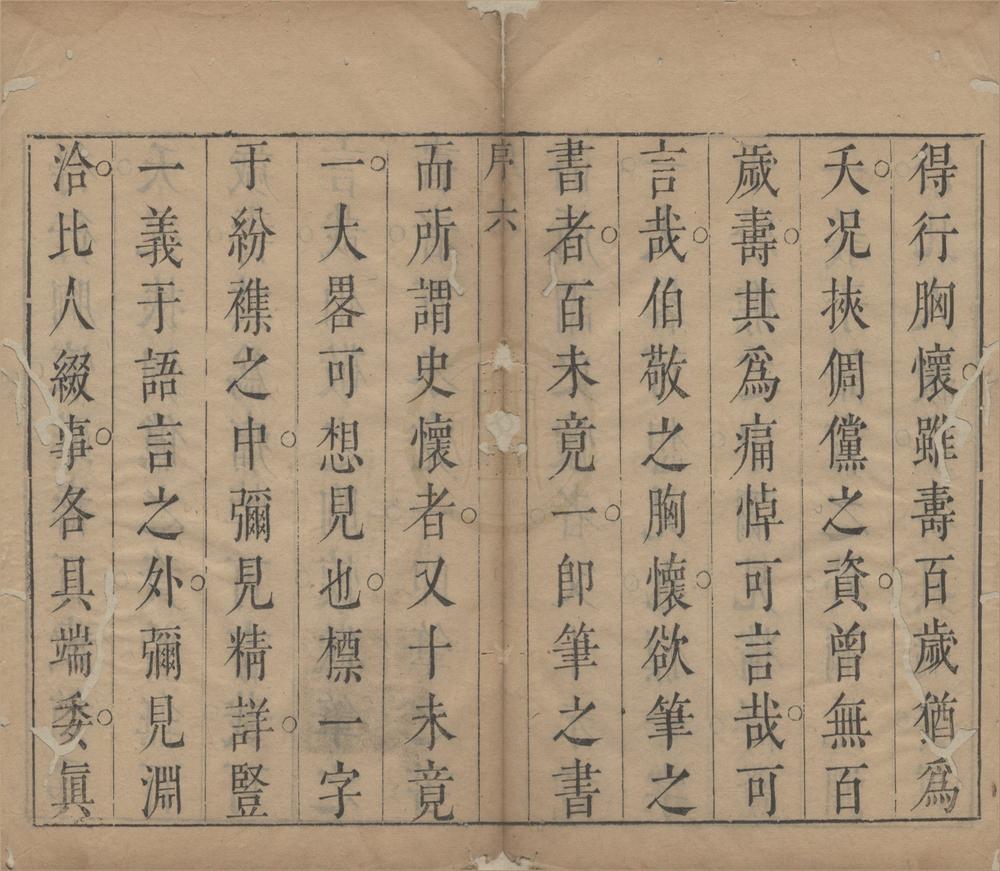 得行胸懷雖壽百歲猶爲
夭况挾倜儻之資曾無百
歲壽其爲痛悼可言哉可
言哉伯敬之胸懷欲筆之
書者百未竟一卽筆之書
序六
而所謂史懷者又十未竟
一大畧可想見也標一字
于紛襍之中彌見精詳豎
一義于語言之外彌見淵
洽比人綴事各具端委眞